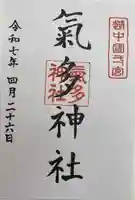 越中國弌宮
氣多神社
氣多
神社
令和七年 四月二十六日